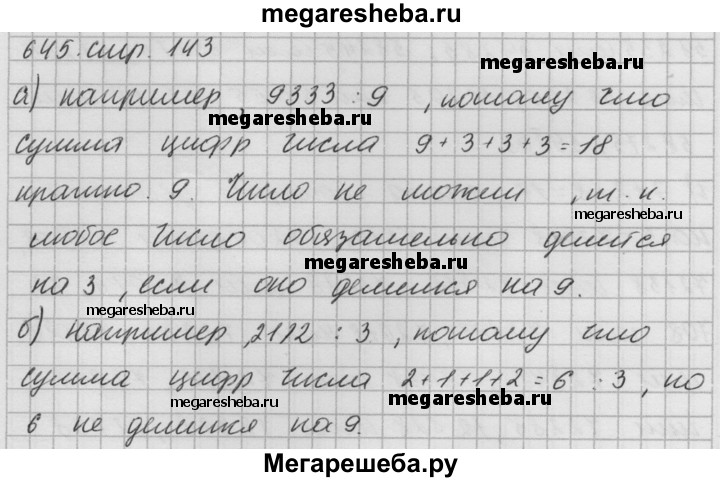 megaresheba.ru
645.стр. 143
megaresheba.ru
а) например 9333 : 9 , потому что
megaresheba.ru
сумма цифр числа 9+3+3+3=18
кратно. 9. Число не можем , т.к.
megaresheba.ru
любое число обязательно делится
megaresheba.ru
на 3 , если оно делится на 9.
megaresheba.ru
б) например ,2112 : 3 , потому что
сумма цифр числа 2+1+1+2=6 : 3, но
megaresheba.ru
megaresheba.ru
6 не делится на 9.
Мегарешеба.ру